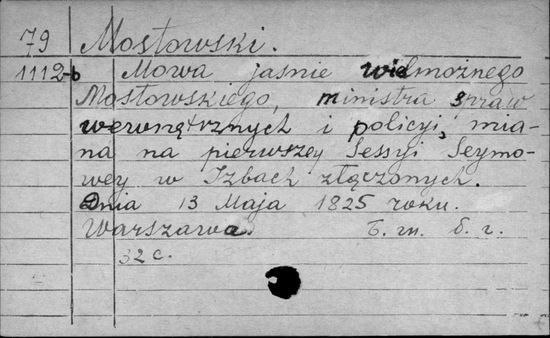 79 Mostowski.
1112-b Mowa jaśnie wielmożnego
Mostowskiego, ministra spraw
wewnętrznych i policyi, mia-
na na pierwszey Sessyi Seymo-
wey w Izbach złączonych.
Dnia 13 Maja 1825 roku.
Warszawa. b. m. b. r.
32 c.